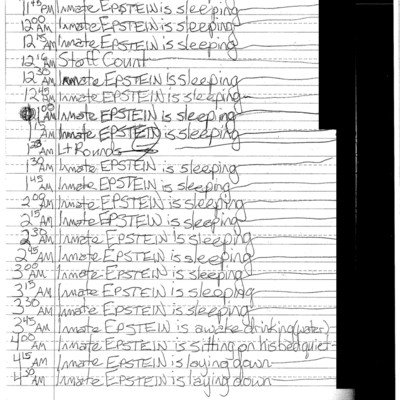 11 45 PM Inmate EPSTEIN is sleeping
12 00 AM Inmate EPSTEIN is sleeping
12 15 AM Inmate EPSTEIN is sleeping
12 16 AM Staff Count
12 30 AM Inmate EPSTEIN is sleeping
12 45 AM Inmate EPSTEIN is sleeping
1 00 AM Inmate EPSTEIN is sleeping
1 15 AM Inmate EPSTEIN is sleeping
AM Lt Rounds
1 30 AM Inmate EPSTEIN is sleeping
1 45 AM Inmate EPSTEIN is sleeping
2 00 AM Inmate EPSTEIN is sleeping
2 15 AM Inmate EPSTEIN is sleeping
2 30 AM Inmate EPSTEIN is sleeping
2 45 AM Inmate EPSTEIN is sleeping
3 00 AM Inmate EPSTEIN is sleeping
3 15 AM Inmate EPSTEIN is sleeping
3 30 AM Inmate EPSTEIN is sleeping
3 45 AM Inmate EPSTEIN is awake drinking (water)
4 00 AM Inmate EPSTEIN is sitting on his bed quiet
4 15 AM Inmate EPSTEIN is laying down
4 30 AM Inmate EPSTEIN is laying down